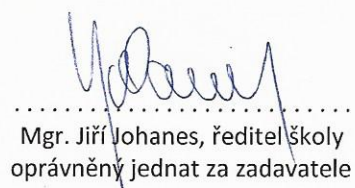 Mgr. Jiří Johanes, ředitel školy
oprávněný jednat za zadavatele